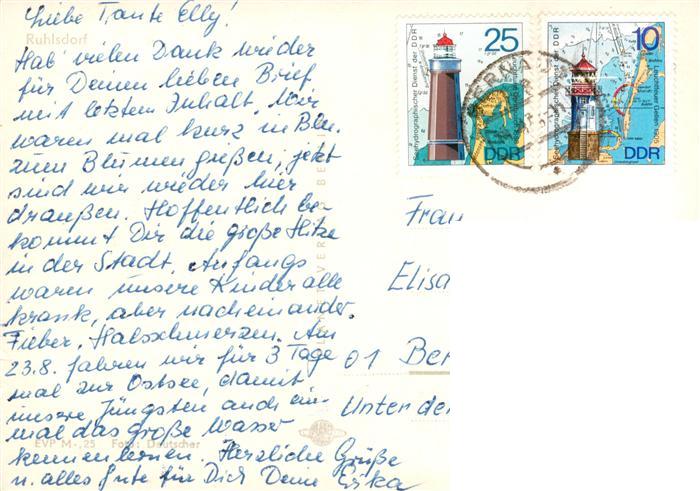 Liebe Tante Elly!
Ruhlsdorf
Hab' vielen Dank wieder
für Deinen lieben Brief
mit letztem Inhalt. Wir
waren mal kurz in Bln.
zum Blumen gießen, jetzt
sind wir wieder hier
draußen. Hoffentlich be-
kommt Dir die große Hitze
in der Stadt. Anfangs
waren unsere Kinder alle
krank, aber nacheinander.
Fieber, Halsschmerzen. Am
23.8. fahren wir für 3 Tage
mal zur Ostsee, damit
unsere Jüngsten auch ein-
mal das große Wasser
kennenlernen. Herzliche Grüße
u. alles Gute für Dich Deine Erika
EVP M -,25 Foto: Deutscher
25
Seehydrographischer Dienst der DDR
DDR
10
Seehydrographischer Dienst der DDR
Leuchtfeuer Gellen 1905
DDR
Frau
Elisa
01 Ber
Unter de